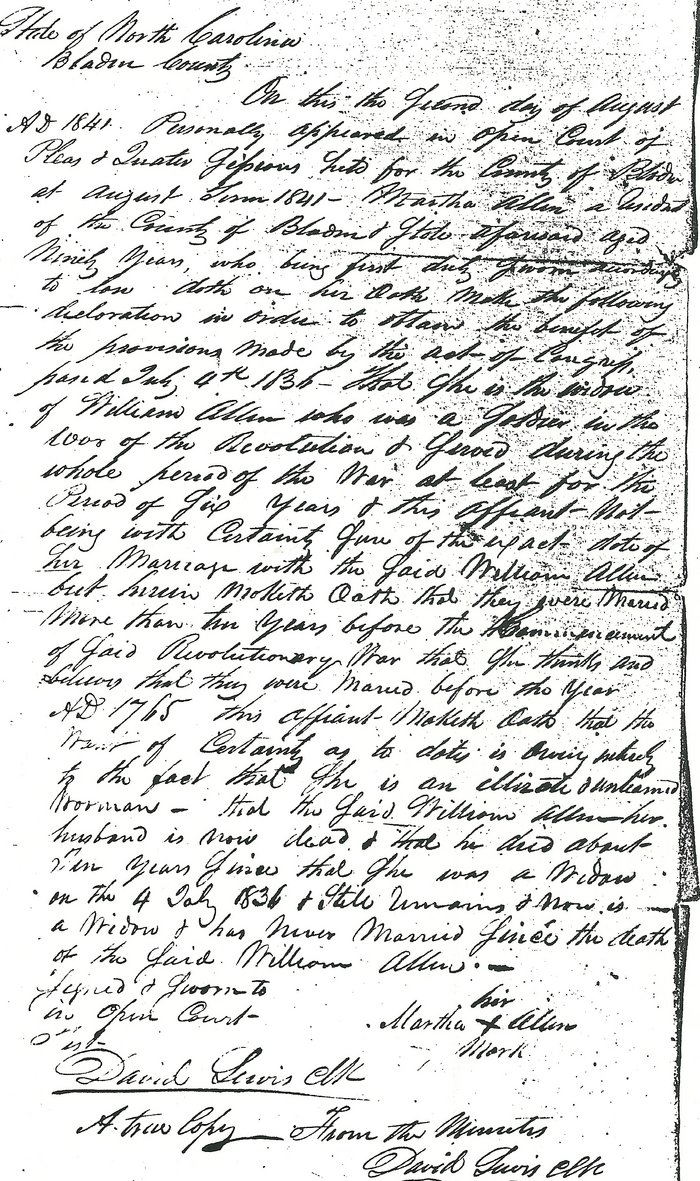 State of North Carolina
Bladen County
On this the Second day of August
AD 1841. Personally appeared in open Court of
Pleas & Quater Sessions held for the County of Bladen
at August Term 1841 – Martha Allen a resident
of the County of Bladen & State aforesaid aged
Ninety Years, who being first duly Sworn according
to law doth on her Oath Make the following
declaration in order to obtain the benefit of
the provisions Made by the act of Congress
passd July 4th 1836 – that She is the widow
of William Allen who was a Soldier in the
War of the Revolution & Served during the
whole period of the War at least for the
Period of Six Years & this affiant Not
being with Certainty Sure of the exact date of
her Marriage with the Said William Allen
but herein Maketh Oath that they were Maried
More than ten Years before the Commencement
of Said Revolutionary War that She thinks and
beleives that they were Maried before the Year
AD 1765 this affiant Maketh Oath that the
Want of Certainty as to dates is Owing wholy
to the fact that She is an illiterate & unlearned
Worman – that the Said William Allen her
husband is now dead & that he died about
Ten years Since that She was a Widow
on the 4 July 1836 & Still remains & Now is
a Widow & has Never Married Since the death
of the Said William Allen. –
Signed & Sworn to
in Open Court
her
Martha X Allen
Mark
Test
David Lewis Clk
A true Copy From the Minutes
David Lewis Clk